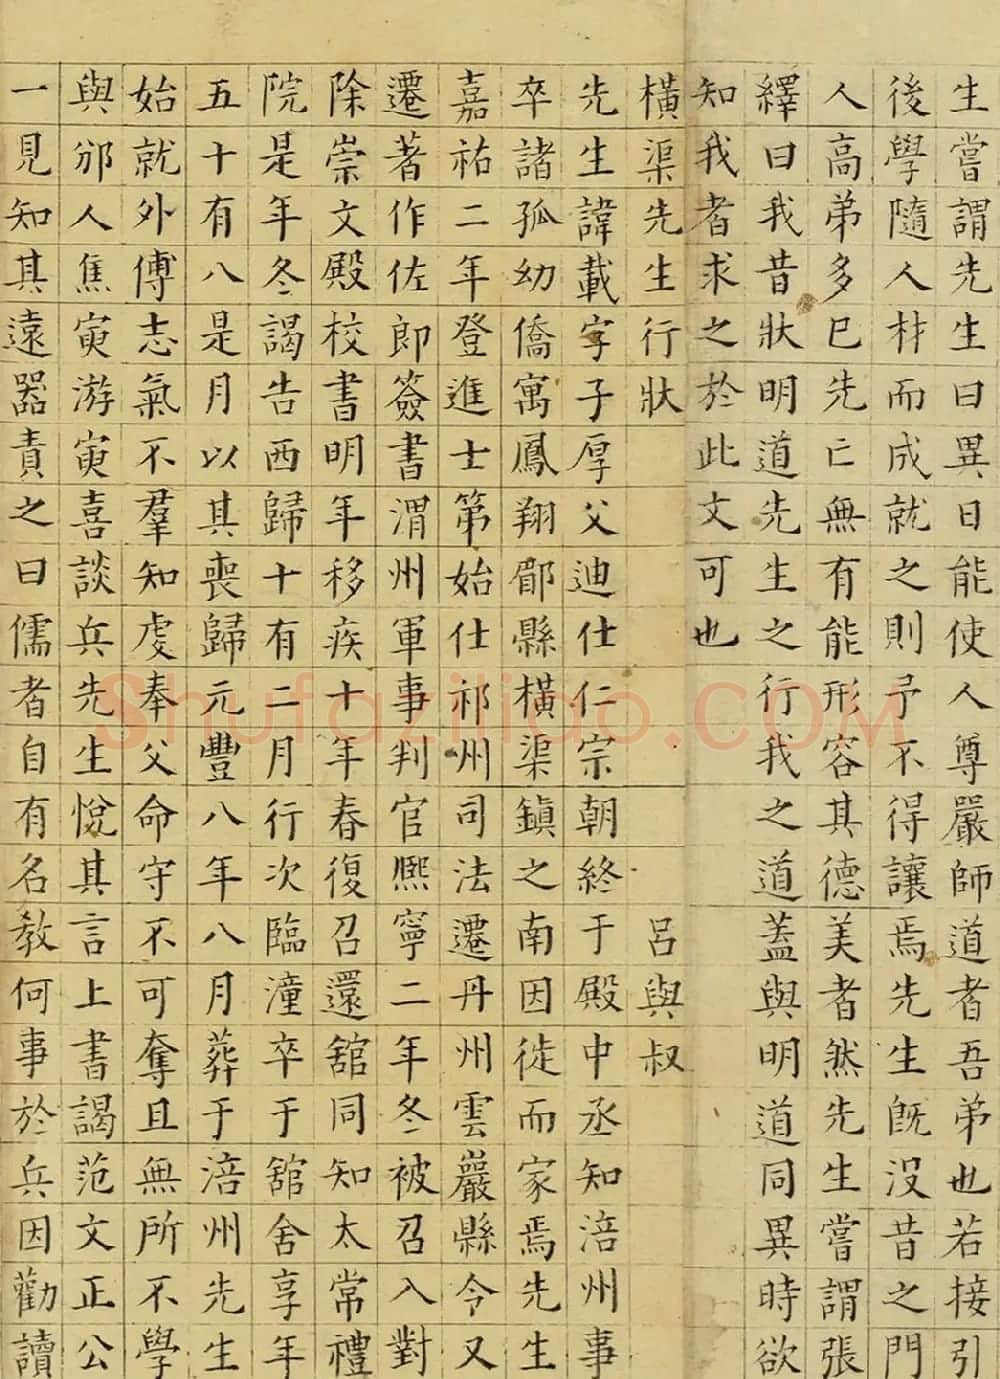 生嘗謂先生曰異日能使人尊嚴師道者吾弟也若接引
後學隨人材而成就之則予不得讓焉先生旣沒昔之門
人高弟多已先亡無有能形容其德美者然先生嘗謂張
繹曰我昔狀明道先生之行我之道蓋與明道同異時欲
知我者求之於此文可也
橫渠先生行狀 呂與叔
先生諱載字子厚父迪仕仁宗朝終于殿中丞知涪州事
卒諸孤幼僑寓鳳翔郿縣橫渠鎮之南因徙而家焉先生
嘉祐二年登進士第始仕祁州司法遷丹州雲巖縣令又
遷著作佐郎簽書渭州軍事判官熙寧二年冬被召入對
除崇文殿校書明年移疾十年春復召還舘同知太常禮
院是年冬謁告西歸十有二月行次臨潼卒于舘舍享年
五十有八是月以其喪歸元豐八年八月葬于涪州先生
始就外傅志氣不羣知虔奉父命守不可奪且無所不學
與邠人焦寅游寅喜談兵先生悅其言上書謁范文正公
一見知其遠器責之曰儒者自有名教何事於兵因勸讀
Shufaziliao.COM